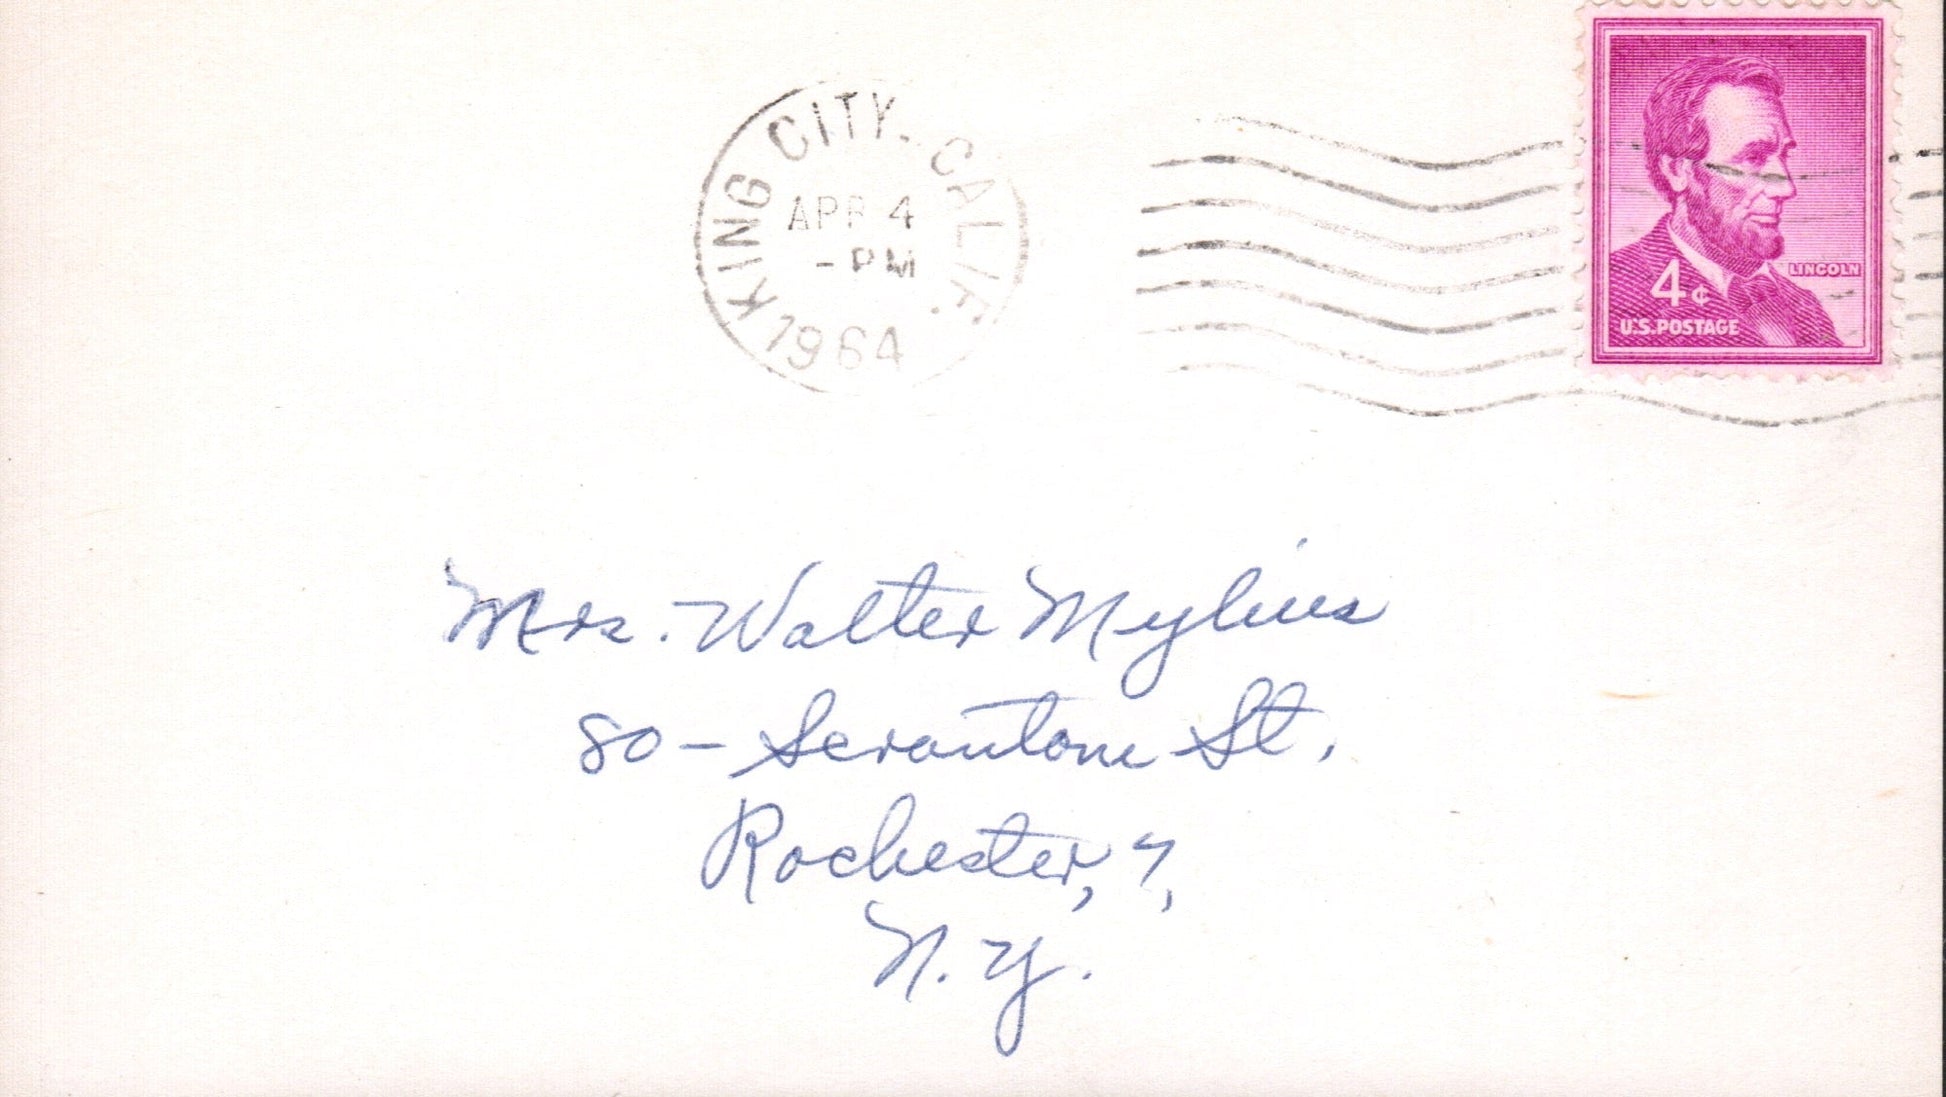 KING CITY, CALIF.
APR 4
-PM
1964
LINCOLN
4¢
U.S.POSTAGE
Mrs. Walter Mylius
80 - Scrantom St.
Rochester, 7,
N. Y.